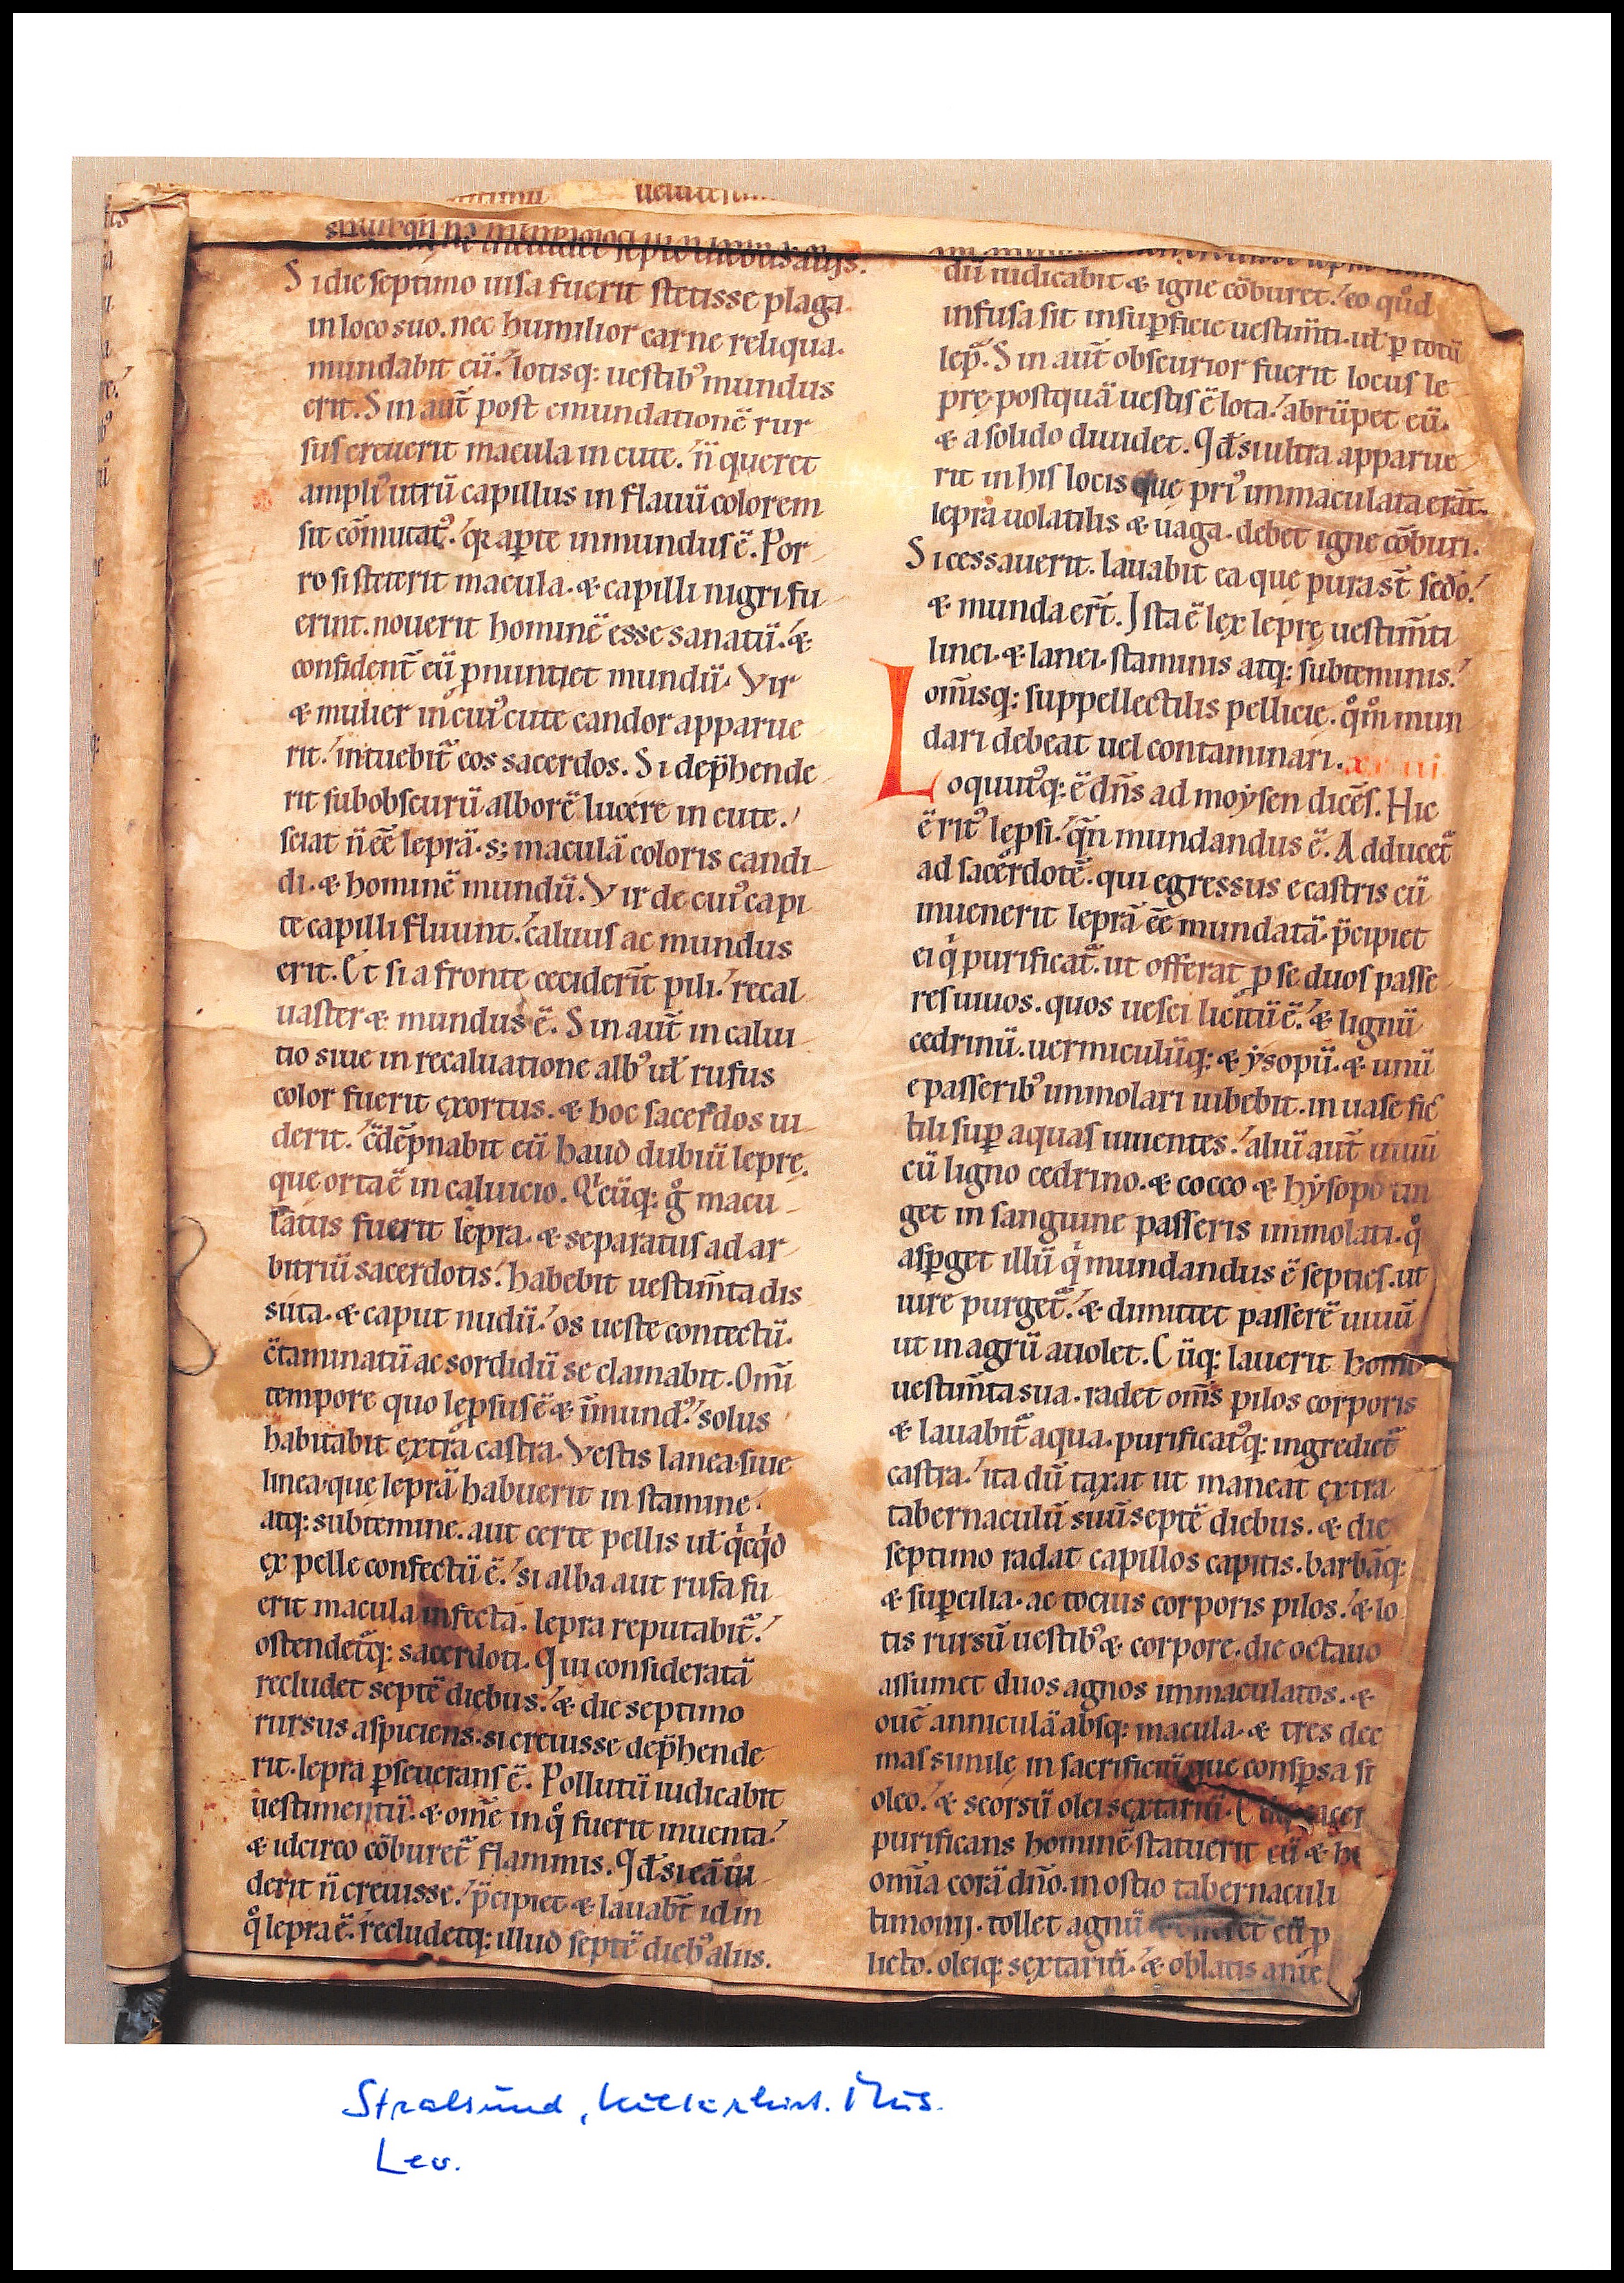 Si die septimo uisa fuerit stetisse plaga
in loco suo. nec humilior carne reliqua.
mundabit eū. lotisq; uestibꝰ mundus
erit. Sin aut̄ post emundationē rur
sus creuerit macula in cute. n̄ queret
ampliꝰ utrū capillus in flauū colorem
sit cōmutatꝰ. qꝛ aꝑte inmundus ē. Por
ro si steterit macula. & capilli nigri fu
erint. nouerit hominē esse sanatū. &
confident̄ eū ꝓnuntiet mundū. Vir
& mulier in cuiꝰ cute candor apparue
rit. intuebit᷑ eos sacerdos. Si dep̄hende
rit subobscurū alborē lucere in cute.
sciat n̄ eē leprā. s; maculā coloris candi
di. & hominē mundū. Vir de cuiꝰ capi
te capilli fluunt. caluus ac mundus
erit. Et si a fronte cecider̄it pili. recal
uaster & mundus ē. Sin aut̄ in calui
tio siue in recaluatione albꝰ uł rufus
color fuerit ęxortus. & hoc sacerdos ui
derit. c̄dēpnabit eū haud dubiū lepre.
que orta ē in caluicio. Qͥcūq; gͦ macu
latus fuerit lepra. & separatus ad ar
bitriū sacerdotis. habebit uestim̄ta dis
suta. & caput nudū. os ueste contectū.
c̄taminatū ac sordidū se clamabit. Om̄i
tempore quo lepsus ē & īmundꝰ. solus
habitabit ęxtra castra. Vestis lanea siue
linea. que leprā habuerit in stamine
atq; subtemine. aut certe pellis uł qͥcqͥd
ęx pelle confectū ē. si alba aut rufa fu
erit macula infecta. lepra reputabit᷑.
ostendet᷑q; sacerdoti. Qui consideratā
recludet septē diebus. & die septimo
rursus aspiciens. si creuisse dep̄hende
rit. lepra ꝑseuerans ē. Pollutū iudicabit
uestimentū. & om̄e in qͦ fuerit inuenta.
& idcirco cōburet᷑ flammis. Qđ si eā ui
derit n̄ creuisse. p̄cipiet & lauab̄t id in
qͦ lepra ē. recludetq; illud septē diebꝰ aliis.
dū iudicabit & igne cōburet. eo quͦd
infusa sit in suꝑficie uestim̄ti. uł ꝑ totū
lep̄. Sin aut̄ obscurior fuerit locus le
prę. postquā uestis ē lota. abrūpet eū.
& a solido diuidet. Qđ si ultra apparue
rit in his locis que priꝰ immaculata erāt.
lepra uolatilis & uaga. debet igne cōburi.
Si cessauerit. lauabit ea que pura st̄ sedo.
& munda er̄t. Ista ē lęx leprę uestim̄ti
linei. & lanei. staminis atq; subteminis.
om̄isq; suppellectilis pellicie. qͦm̊ mun
dari debeat uel contaminari.
Loquutꝰq; ē dn̄s ad moẏsen dicēs. Hic
ē ritꝰ lepsi. qn̄ mundandus ē. Adducet᷑
ad sacerdotē. qui egressus e castris cū
inuenerit leprā eē mundatā. p̄cipiet
ei qͥ purificat᷑. ut offerat ꝓ se duos passe
res uiuos. quos uesci licitū ē. & lignū
cedrinū. uermiculūq; & ẏsopū. & unū
e passeribꝰ immolari iubebit. in uase fic
tili suꝑ aquas uiuentes. aliū aut̄ uiuū
cū ligno cedrino. & cocco & hẏsopo tin
get in sanguine passeris immolati. qͦ
asꝑget illū qͥ mundandus ē septies. ut
iure purget᷑. & dimittet passerē uiuū
ut in agrū auolet. Cūq; lauerit homo
uestim̄ta sua. radet om̄s pilos corporis
& lauabit᷑ aqua. purificatꝰq; ingrediet᷑
castra. ita dū taxat ut maneat ęxtra
tabernaculū suū septē diebus. & die
septimo radat capillos capitis. barbāq;
& suꝑcilia. ac tocius corporis pilos. & lo
tis rursū uestibꝰ & corpore. die octauo
assumet duos agnos immaculatos. &
ouē anniculā absq; macula. & tres dec
mas simile in sacrificiū que consꝑsa si
oleo. & seorsū olei sęxtariū.
purificans hominē statuerit eū &
om̄a corā dn̄o. in ostio tabernaculi
timonij. tollet agnū
licto. oleiq; sęxtariū. & oblatis ante
Stralsund, Kulturhist. Mus.
Lev.